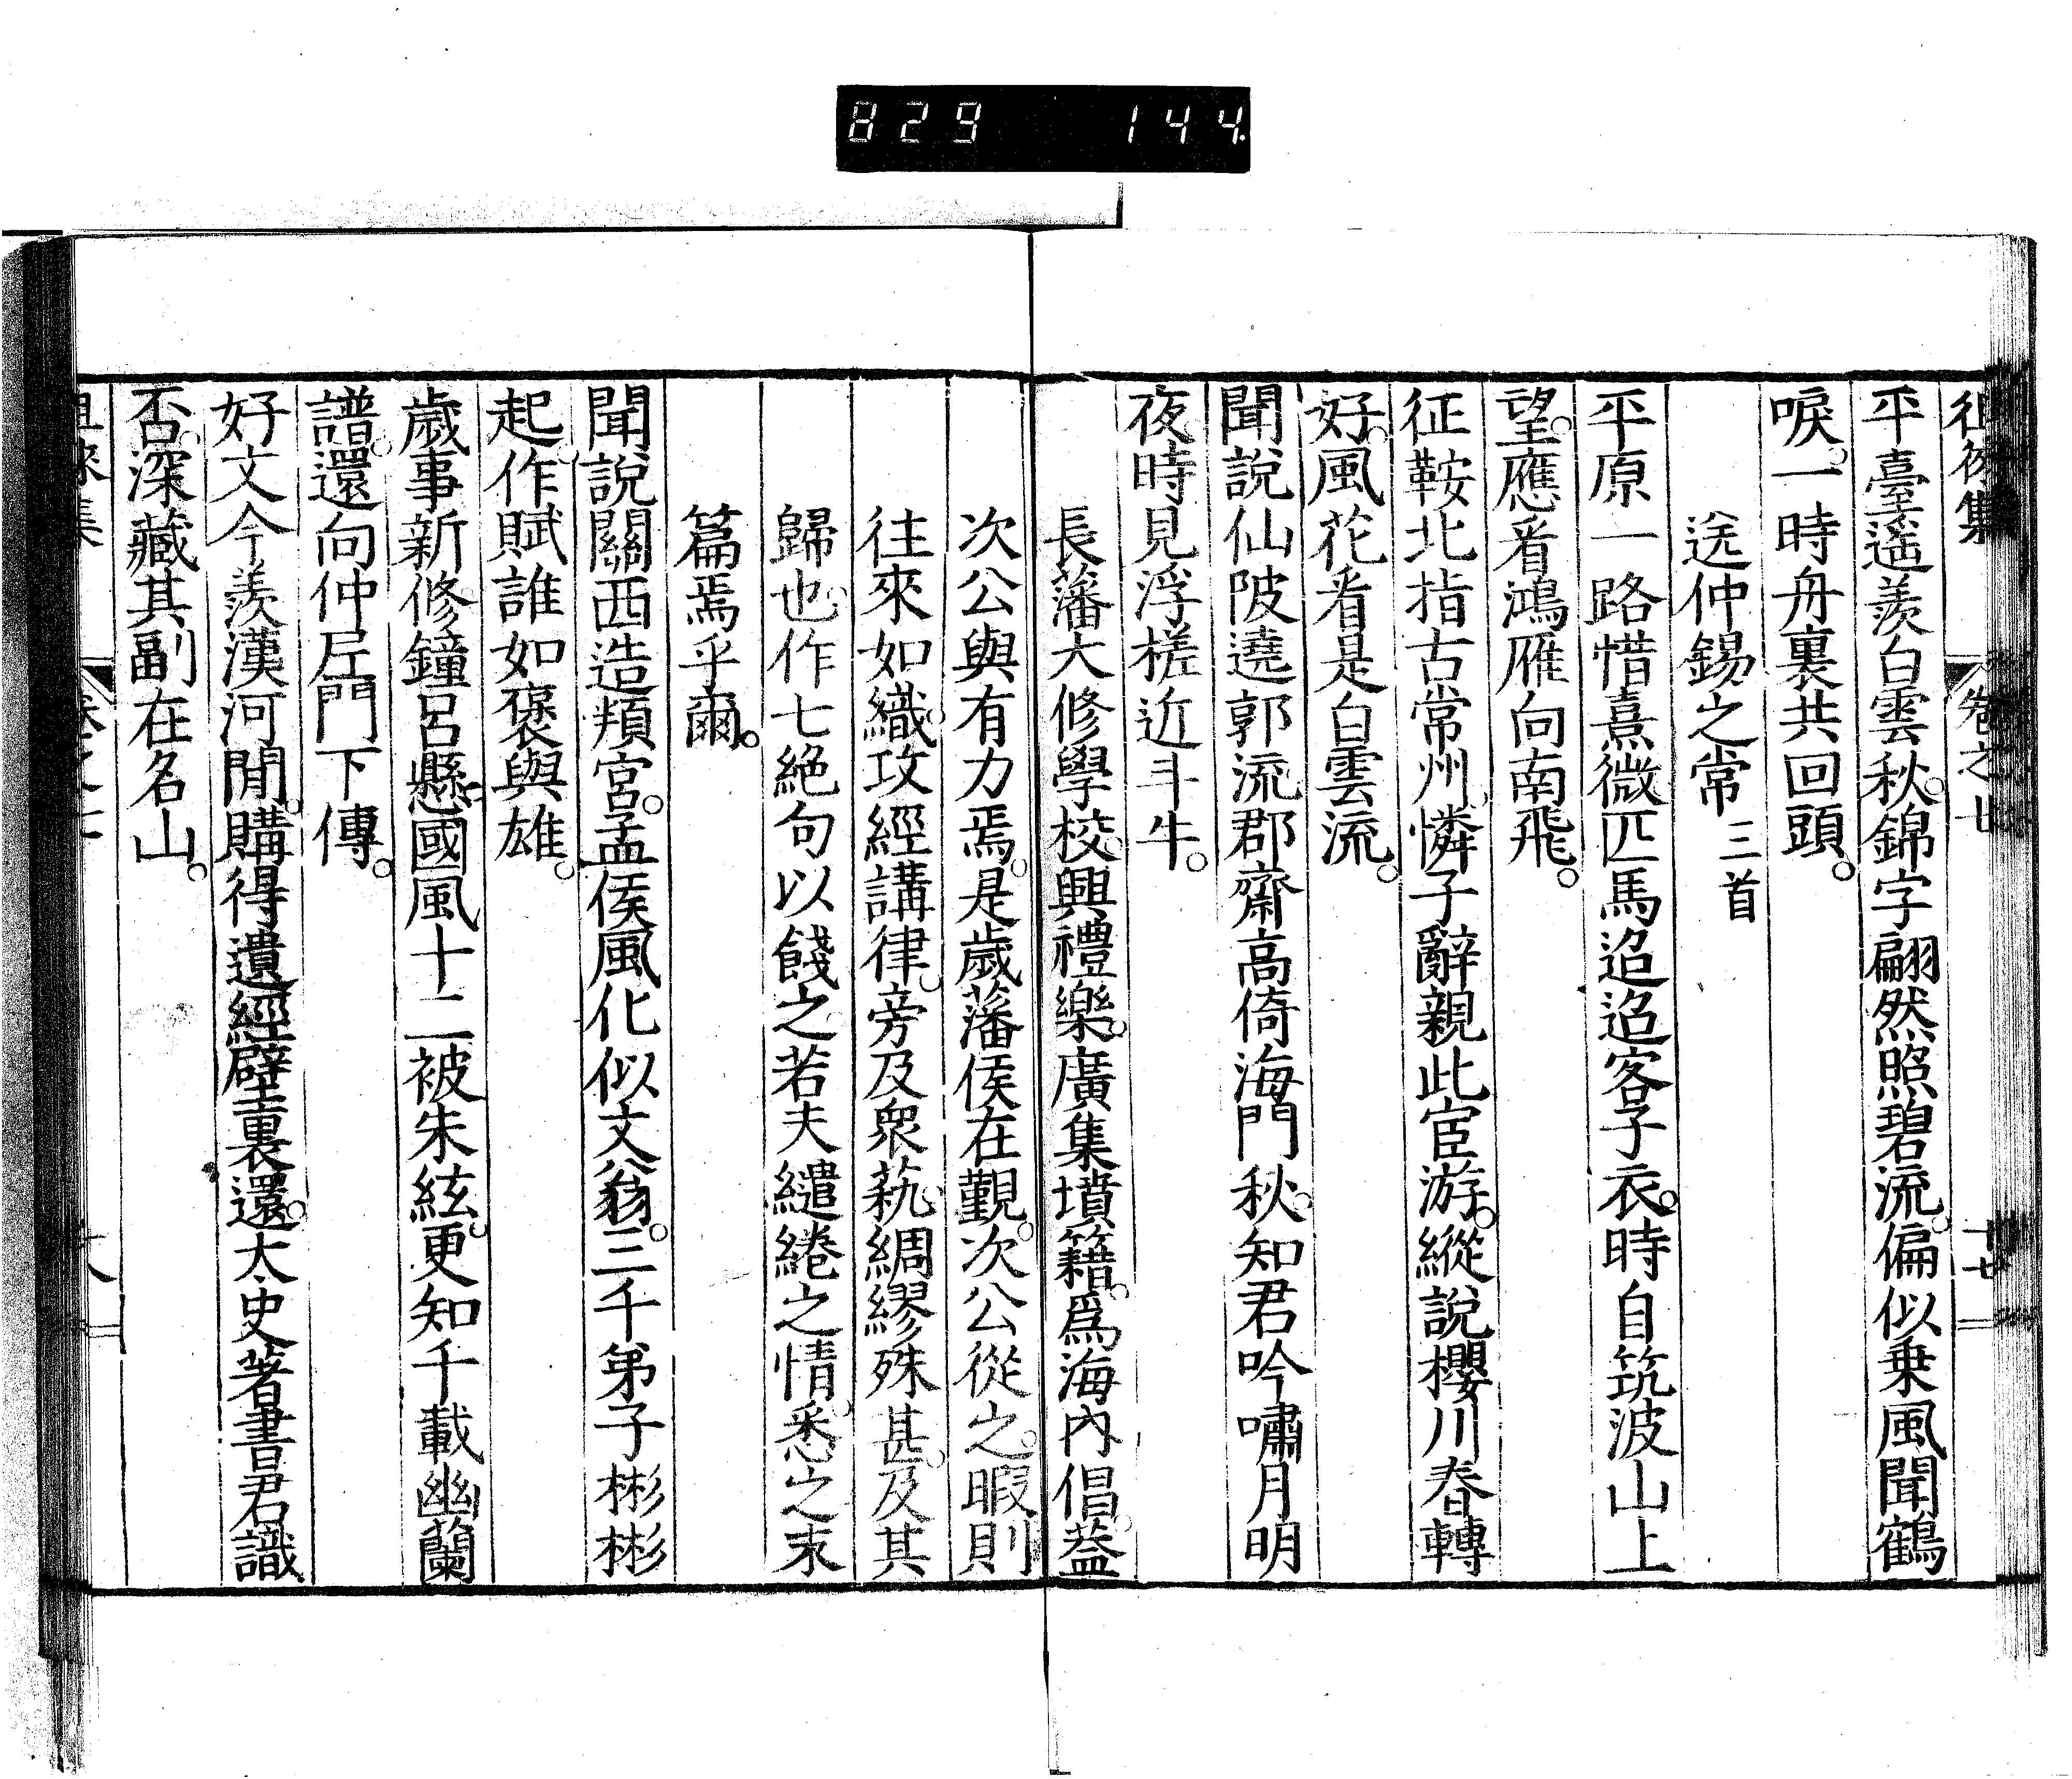 829 144
徂徠集 卷之七 十七
平臺遙羨白雲秋。錦字翩然照碧流。偏似乗風聞鶴
唳。一時舟裏共回頭。
送仲錫之常三首
平原一路惜熹微匹馬迢迢客子衣。時自筑波山上
望。應看鴻雁向南飛。
征鞍北指古常州。憐子辭親此宦游。縱說櫻川春轉
好。風花看是白雲流。
聞說仙陂遶郭流。郡齋高倚海門秋。知君吟嘯月明
夜。時見浮槎近斗牛。
長藩大修學校。興禮樂。廣集墳籍。爲海內倡。葢
次公與有力焉。是歲藩侯在覲。次公從之。暇則
往來如織。攻經講律。旁及衆蓺。綢繆殊甚。及其
歸也。作七絕句以餞之若夫繾綣之情。悉之末
篇焉乎爾。
聞說關西造頖宮。孟侯風化似文翁。三千弟子彬彬
起。作賦誰如褒與雄。
歲事新修鐘呂懸國風十二被朱絃。更知千載幽蘭
譜。還向仲𡰱門下傳。
好文今羨漢河間。購得遺經壁裏還。太史著書君識
否。深藏其副在名山。
徂徠集 卷之七 十八